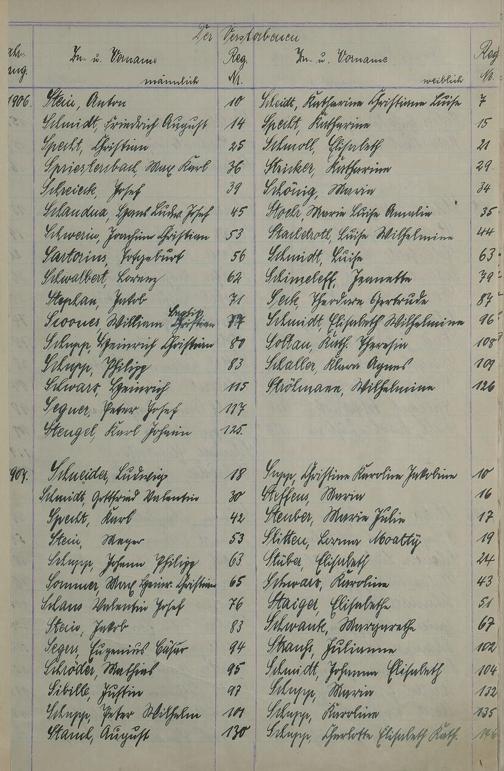 Der Verstorbenen
Zu- u. Vorname Reg. Zu- u. Vorname Reg
männlich Nr. weiblich Nr.
1906. Stein, Anton 10 Scheidt, Katharine Christiane Luise 7
Schmidt, Friedrich August 14 Specht, Katharine 15
Specht, Christian 25 Schmoll, Elisabeth 21
Spriestersbach, Max Karl 36 Stricker, Katharine 29
Schreieck, Josef 39 Schönig, Maria 34
Hans Ludw. Josef 45 Stock, Marie Luise Amalie 35
Schwerin, Joachim Christian 53 Luise Wilhelmine 44
Sartorius, Totgeburt 56 Schmidt, Luise 63
Schwalbert, Lorenz 62 Jeanette 79
Stephan, Jakob 71 Theodore Gertrude 87
William Christian 77 Schmidt, Elisabeth Wilhelmine 96
Schupp, Heinrich Christian 80 Kath. Theresia 108
Schupp, Philipp 83 Schaller, Klara Agnes 109
Schwarz, Heinrich 115 Strölmann, Wilhelmine 126
Segner, Peter Josef 117
Stengel, Karl Johann 125.
907. Schneider, Ludwig 18 Sapp, Christine Karoline Jakobine 10
Schmidt, Gottfried Valentin 30 Steffens, Maria 16
Specht, Karl 42 Steuber, Marie Julie 17
Stein, Meyer 53 19
Schupp, Johann Philipp 63 Stüber, Elisabeth 24
Sommer, Max Heinr. Christian 65 Schwarz, Karoline 43
Valentin Josef 76 Staiger, Elisabethe 51
Stein, Jakob 83 Schwank, Margarethe 67
Segers, Eugenius Cäsar 94 Strauß, Julianne 102
Schröder, Mathias 95 Schmidt, Johanna Elisabeth 104
Justin 97 Schupp, Maria 132
Schupp, Peter Wilhelm 101 Schupp, Karoline 135
Stamel, August 130 Schupp, Charlotte Elisabeth Kath.